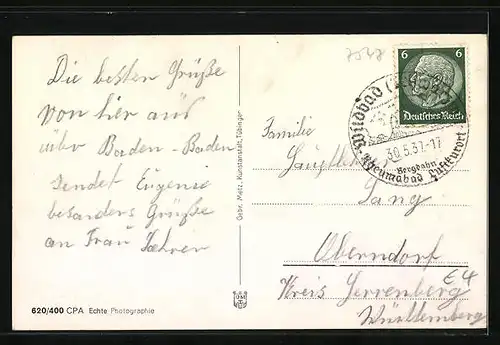 Die besten Grüße
von hier aus
über Baden-Baden
sendet Eugenie
besonders Grüße
an Frau
620/400 CPA Echte Photographie
Gebr. Metz, Kunstanstalt, Tübingen
7548
6 6
Deutsches Reich
Wildbad
30.5.37-17
Bergbahn
Rheumabad Luftkurort
Familie
Lang
Oberndorf
Kreis Herrenberg
Württemberg